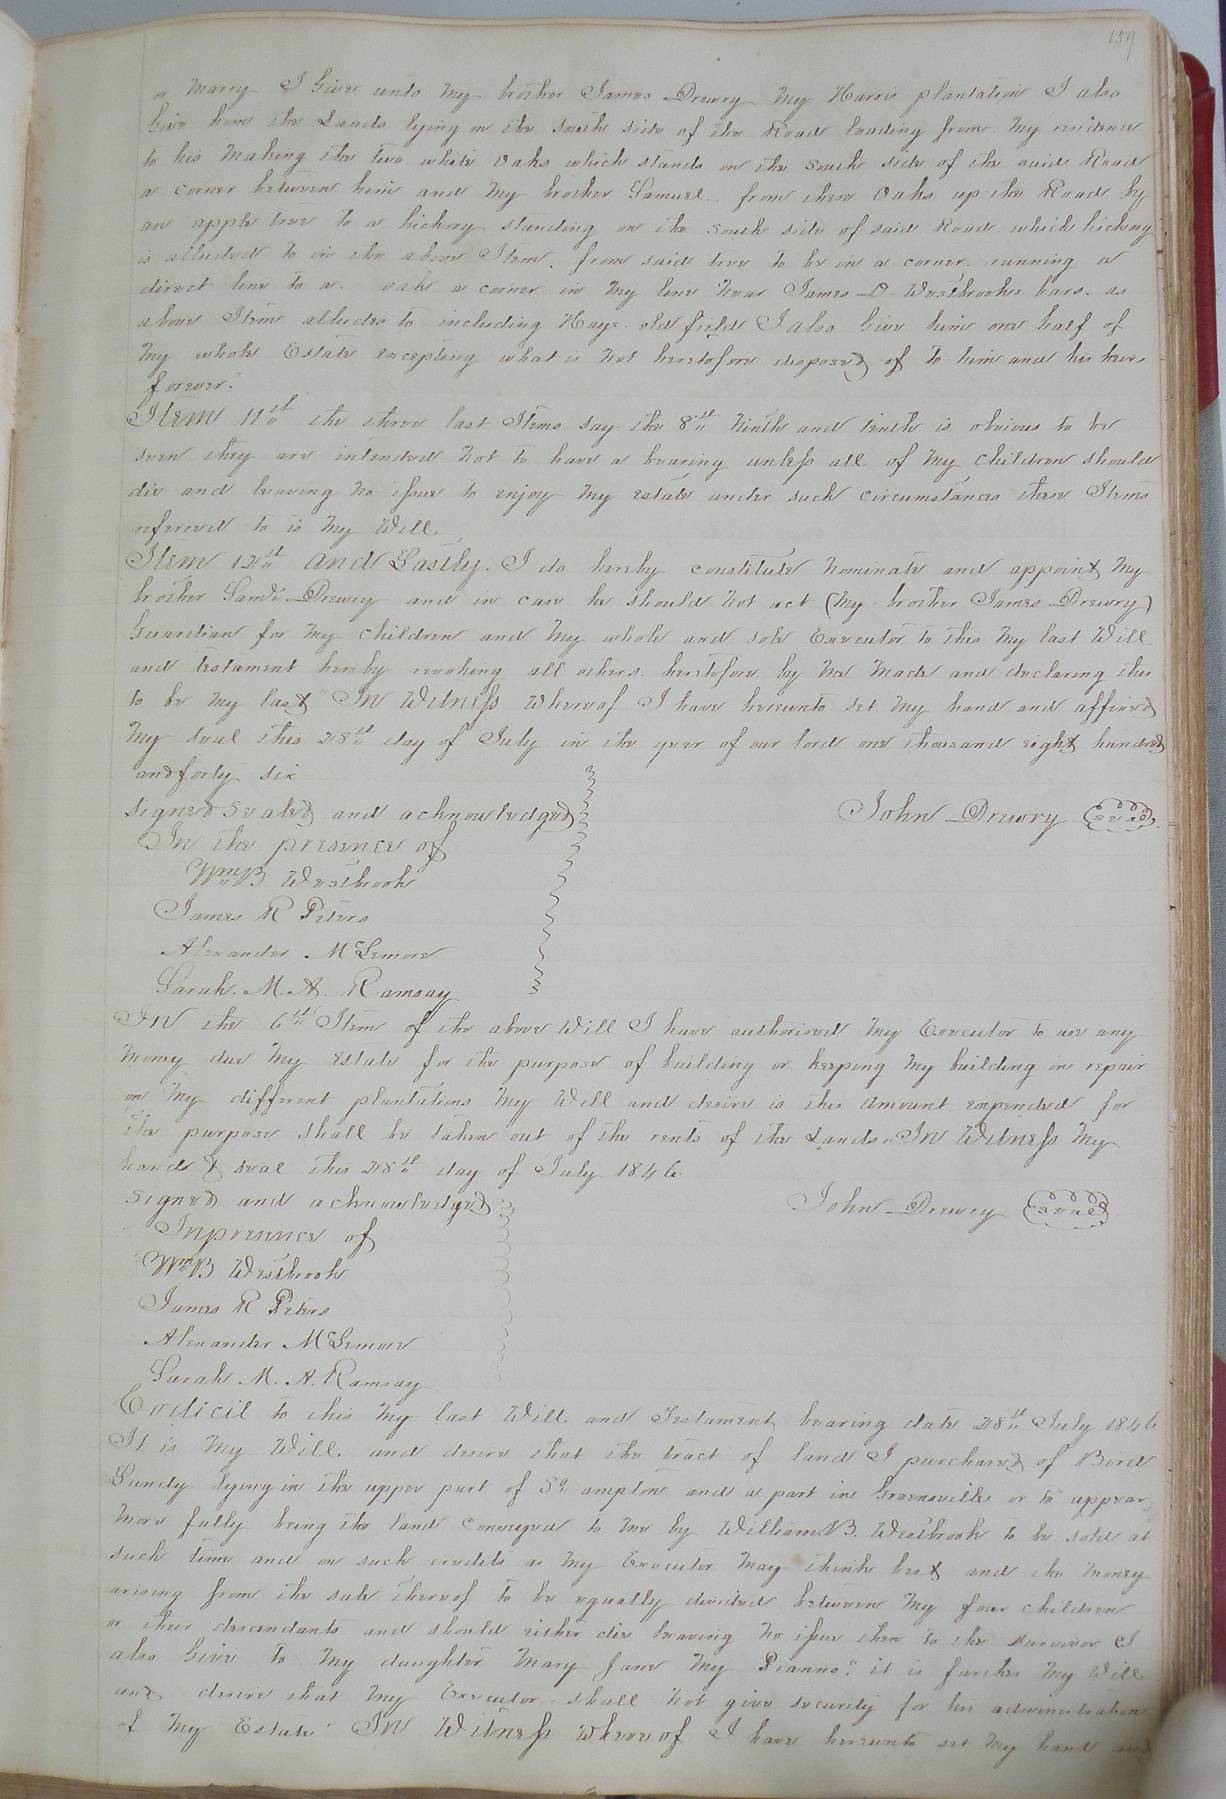 159
or Marry I Give unto My brother James Drewry My Harris plantation I also
Give him the Lands lying on the south side of the Road leading from My residence
to his Making the two white Oaks which stands on the South side of the said Road
a corner between him and My brother Samuel. from these Oaks up the Road by
an apple tree to a hickory standing on the South side of said Road which hickory
is alluded to in the above Item, from said tree to be in a corner running a
direct line to a oak a corner in My line Near James D. Westbrooks bars. as
above Item alludes to including Hays old field I also Give him one half of
My whole Estate excepting what is Not heretofore disposed of to him and his heirs
forever.
Item 11th the three last Items say the 8th Ninth and tenth is obvious to be
seen they are intended Not to have a bearing unless all of My Children should
die and leaving No issue to enjoy My estate under such circumstances these Items
referred to is My Will.
Item 12th And Lastly. I do hereby constitute Nominate and appoint My
brother Saml Drewry and in case he should Not act (My brother James Drewry)
Guardian for My Children and My whole and sole Executor to this My last Will
and testament hereby revoking all others heretofore by Me Made and declaring this
to be My last" In Witness Whereof I have hereunto set My hand and affixed
My Seal this 28th day of July in the year of our lord one thousand eight hundred
and forty six
Signed Sealed and acknowledged John Drewry Seal
In the presence of
Wm B Westbrook
James R Peters
Alexander McLemore
Sarah. M. A. Ramsay
In the 6th Item of the above Will I have authorised My Executor to use any
Money due My Estate for the purpose of building or keeping My building in repair
on My different plantations My Will and desire is this Amount expended for
the purpose shall be taken out of the rents of the Lands. In Witness My
hand & seal this 28th day of July 1846
Signed and acknowledged John Drewry Seal
In presence of
Wm B Westbrook
James R Peters
Alexander McLemore
Sarah M. A. Ramsay
Codicil to this My last Will and Testament bearing date 28th July 1846
It is My Will, and desire that the tract of land I purchased of Bird
Lundy lying in the upper part of So ampton and a part in Greensville or to appear
More fully being the land conveyed to Me by William B. Westbrook to be sold at
such time and on such credits as My Executor May think best and the Money
arising from the sale thereof to be equally divided between My four children
or their descendants and should either die leaving No issue then to the survivor I
also Give to My daughter Mary Jane My Pianno. it is further My Will
and desire that My Executor shall Not give security for his administration
of My Estate" In Witness Whereof I have hereunto set My hand and